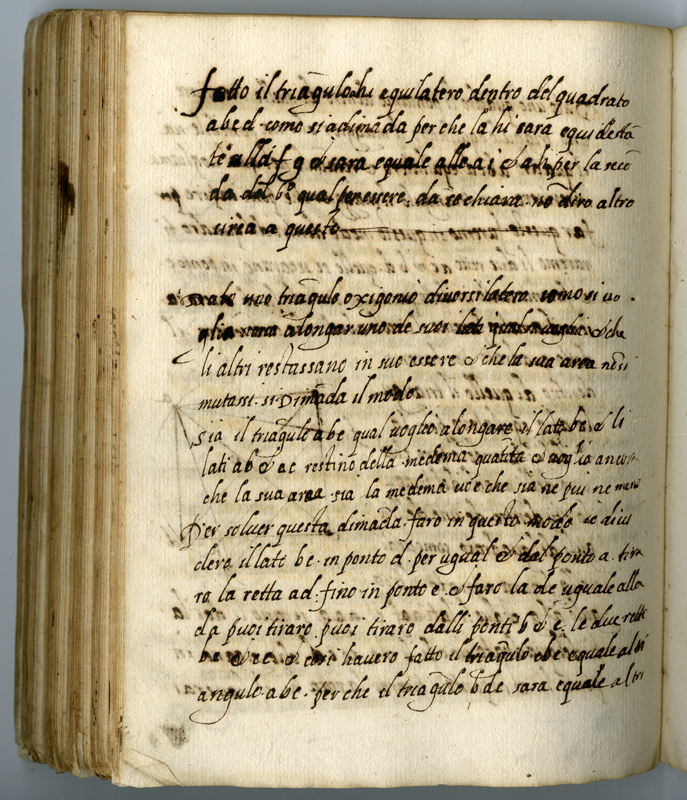 fatto il triãgulo ahi equilatero dentro del quadrato
abcd como si adimãda perche la hi sara equidestã
te alla f g & sara equale alle a i & a h per la secõ
da del b° qual per essere da se chiara nõ diro altro
circa a questo
Dato uno triãgulo oxigonio diversilatero como si uo
glia alongar uno de suoi lati qual & che
li altri restassano in suo essere & che la sua area nõ si
mutassi si Dimãda il modo
Sia il triãgulo abc qual voglio alongare il lato bc & li
lati ab & ac restino della medema quãtita & voglio ancor
che la sua area sia la medema cice che sia ne piu ne meno
Per solver questa dimãda faro in questo modo io divi
dero il lato bc in ponto d per ugual & dal ponto a tira
ro la retta ad fino in ponto e & faro la de uguale alla
da puoi tiraro puoi tiraro dalli ponti b & c le due rette
be & ec & cosi havero fatto il triãgulo cbe equale al tri
angulo abc perche il triãgulo bde sara equale al tri